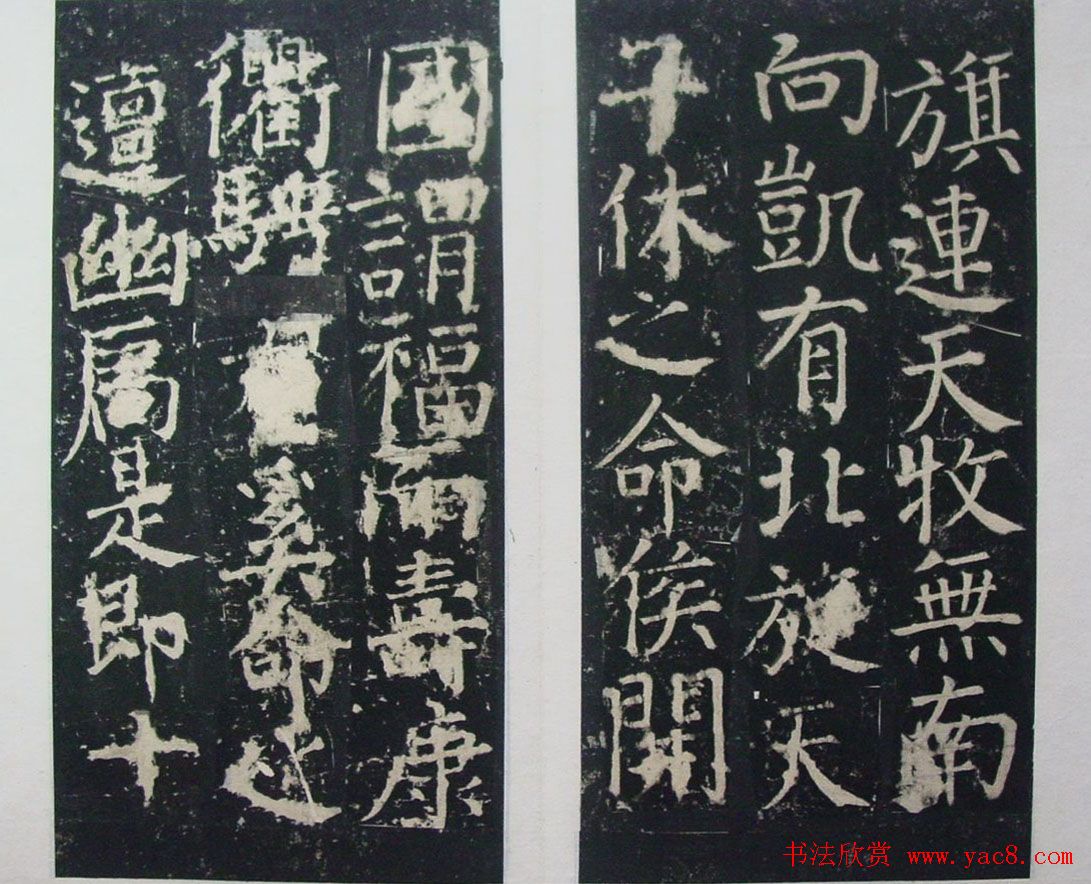 旗連天牧無南
向凱有北施天
子休之命侯開
國謂福而壽康
衢騁奚命之
邅幽扃是即十
书法欣赏 www.yac8.com